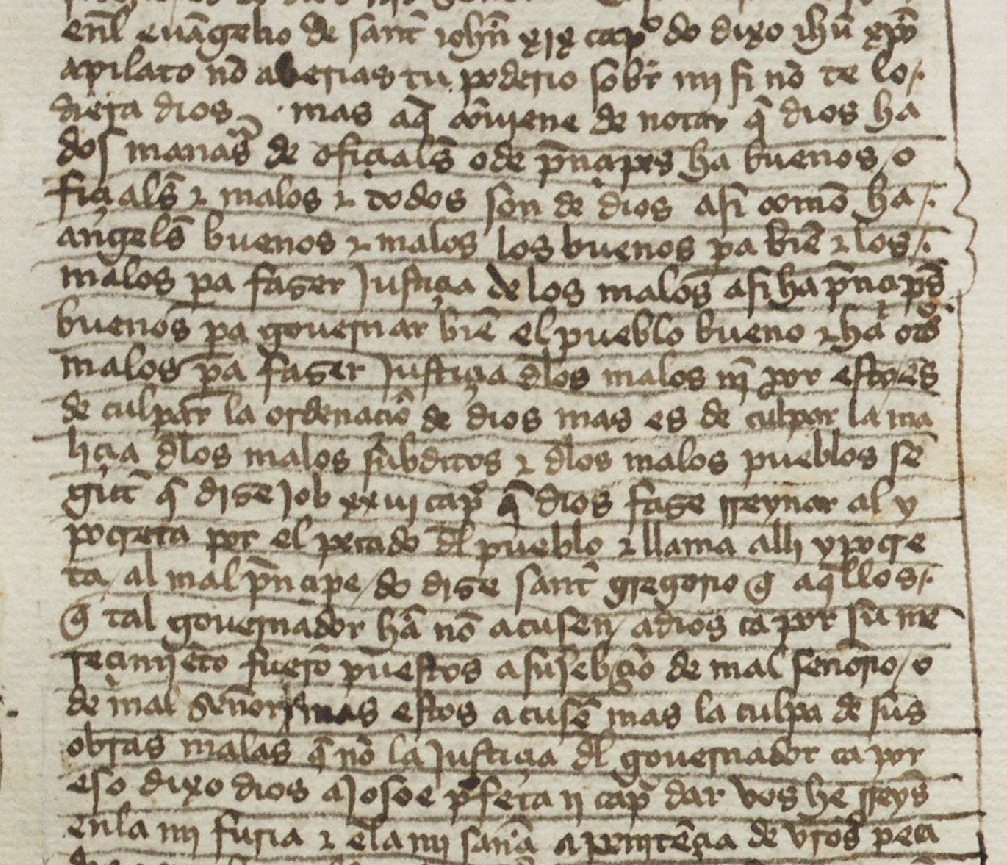 enl evãgelio de sant iohñ xix capº do dixo ihũ xpõ
apilato nõ aberias tu poderio sobr mi si nõ te lo
diera dios mas aq̃ cõuiene de notar q̃ dios ha
dos manãs de ofiçials̃ o de p̃nçipes ha buenos o
fiçials̃ ⁊ malos ⁊ todos son de dios asi commõ ha
angels̃ buenos ⁊ malos los buenos pa biẽ ⁊ los
malos pa fazer justiçia de los malos asi ha p̃nçip̃s
buenos pa gouernar biẽ el pueblo bueno ⁊ ha otõs
malos pa fazer justiçia dlos malos nĩ por esto es
de culpar la ordenaciõ de dios mas es de culpar la ma
liçia dlos malos subditos ⁊ dlos malos pueblos se
gũt q̃ dize job xxvi capº q̃ dios faze rreynar al y
pocreta por el pecado dl pueblo ⁊ llama alli ypocre
ta al mal p̃nçipe do dize sant gregorio q̃ aq̃llos
q̃ tal gouernador hã nõ acusen a dios ca por su me
reçimiẽto fuerõ puestos a su seruiçio de mal señorio o
de mal señor mas estos acusẽ mas la culpa de sus
obras malas q̃ nõ la justiçia dl gouernador ca por
eso dixo dios a josoe p̃feta ii capº dar vos he rreys̃
en la mi furia ⁊ ẽla mi sanã a penitẽçia de vr̃os peca